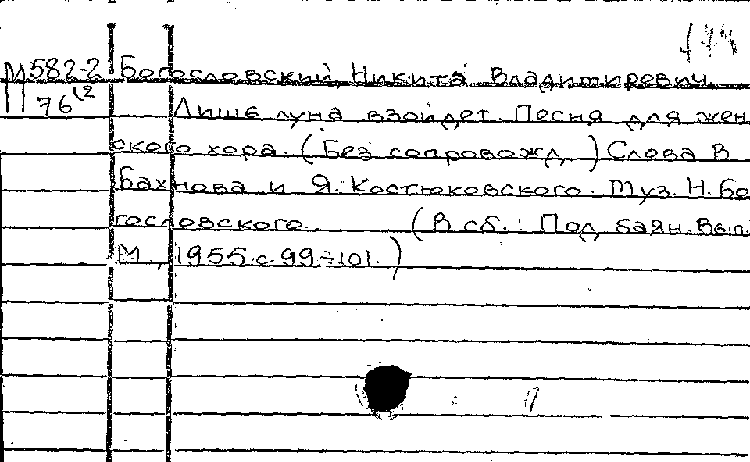 М582-2 Богословский, Никита Владимирович.
76 12 Лишь луна взойдет. Песня для жен
ского хора. (Без сопровожд.) Слова В
Бахнова и Я. Костюковского. Муз. Н. Бо
гословского. (В сб.: Под баян. Вып.
М., 1955. с. 99-101.)